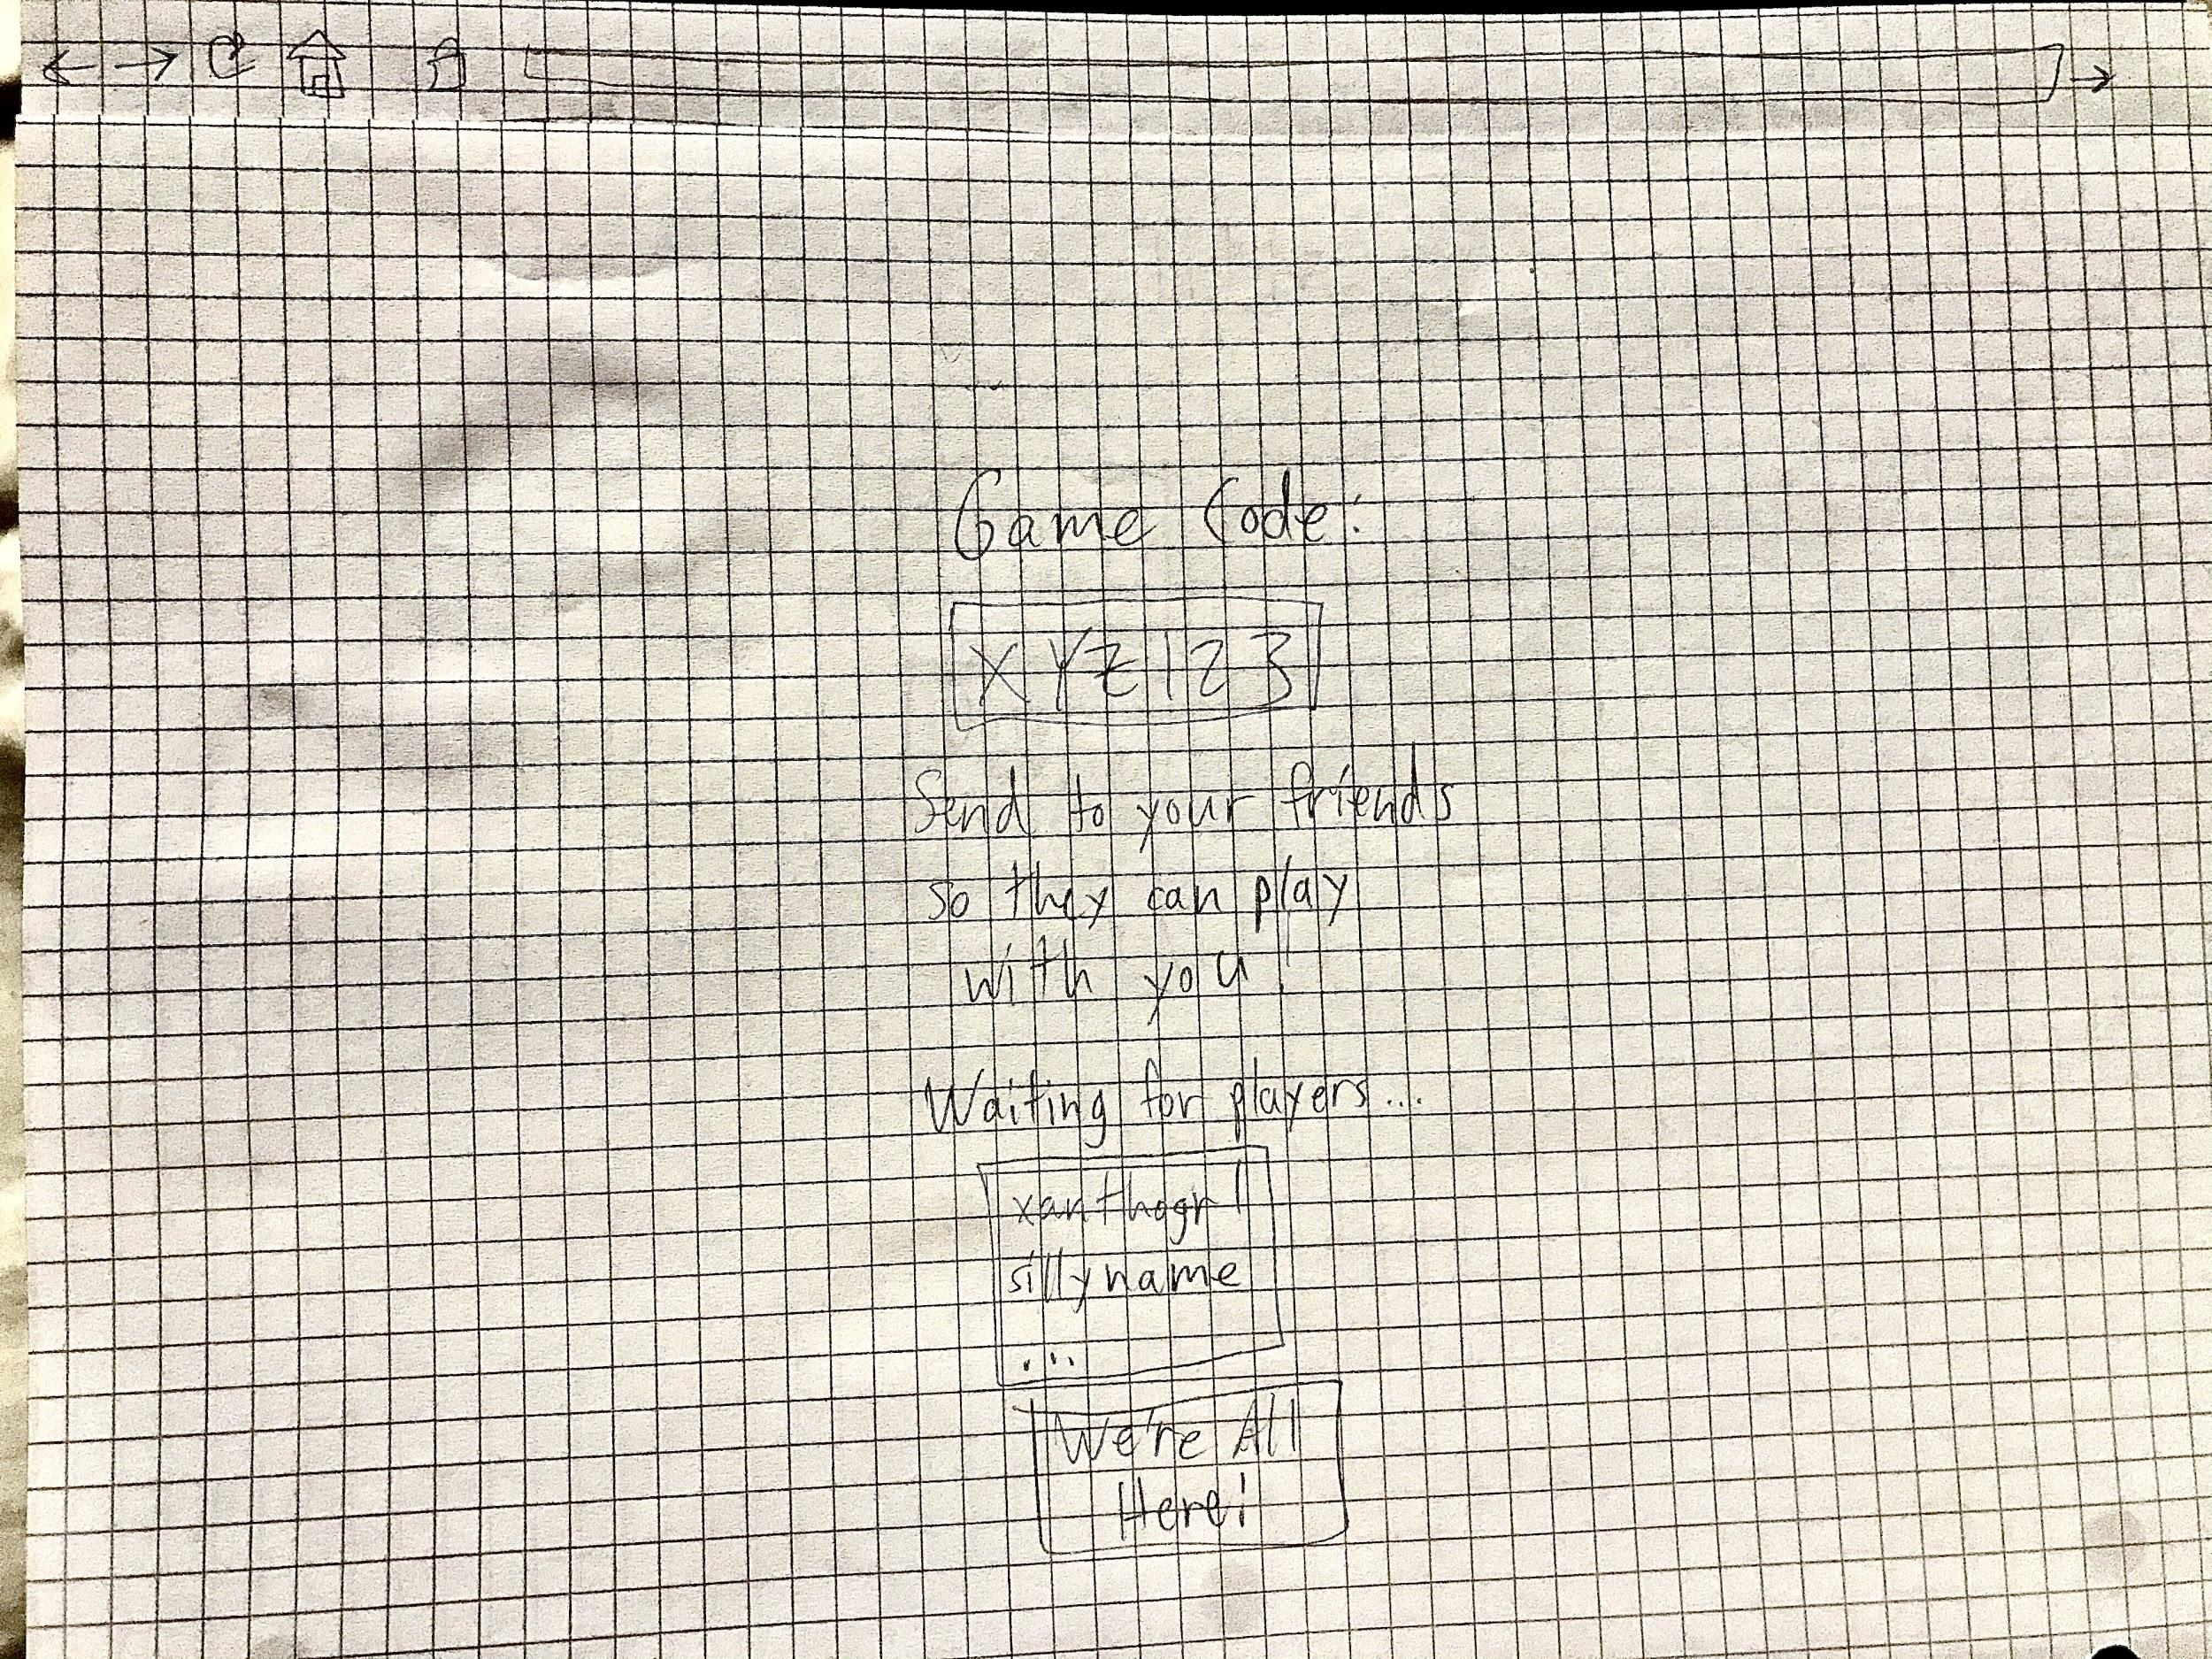 Game Code:
XYZ123
Send to your friends
so they can play
with you!
Waiting for players...
xanthogrl
sillyname
...
We're All
Here!